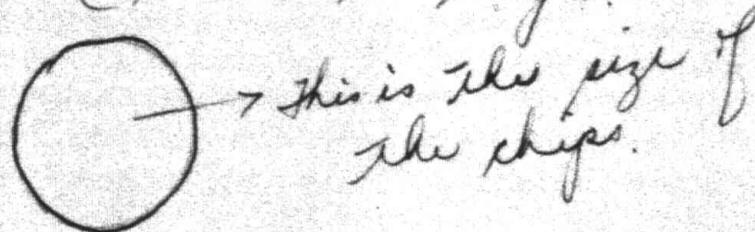 This is the size of
the chips.